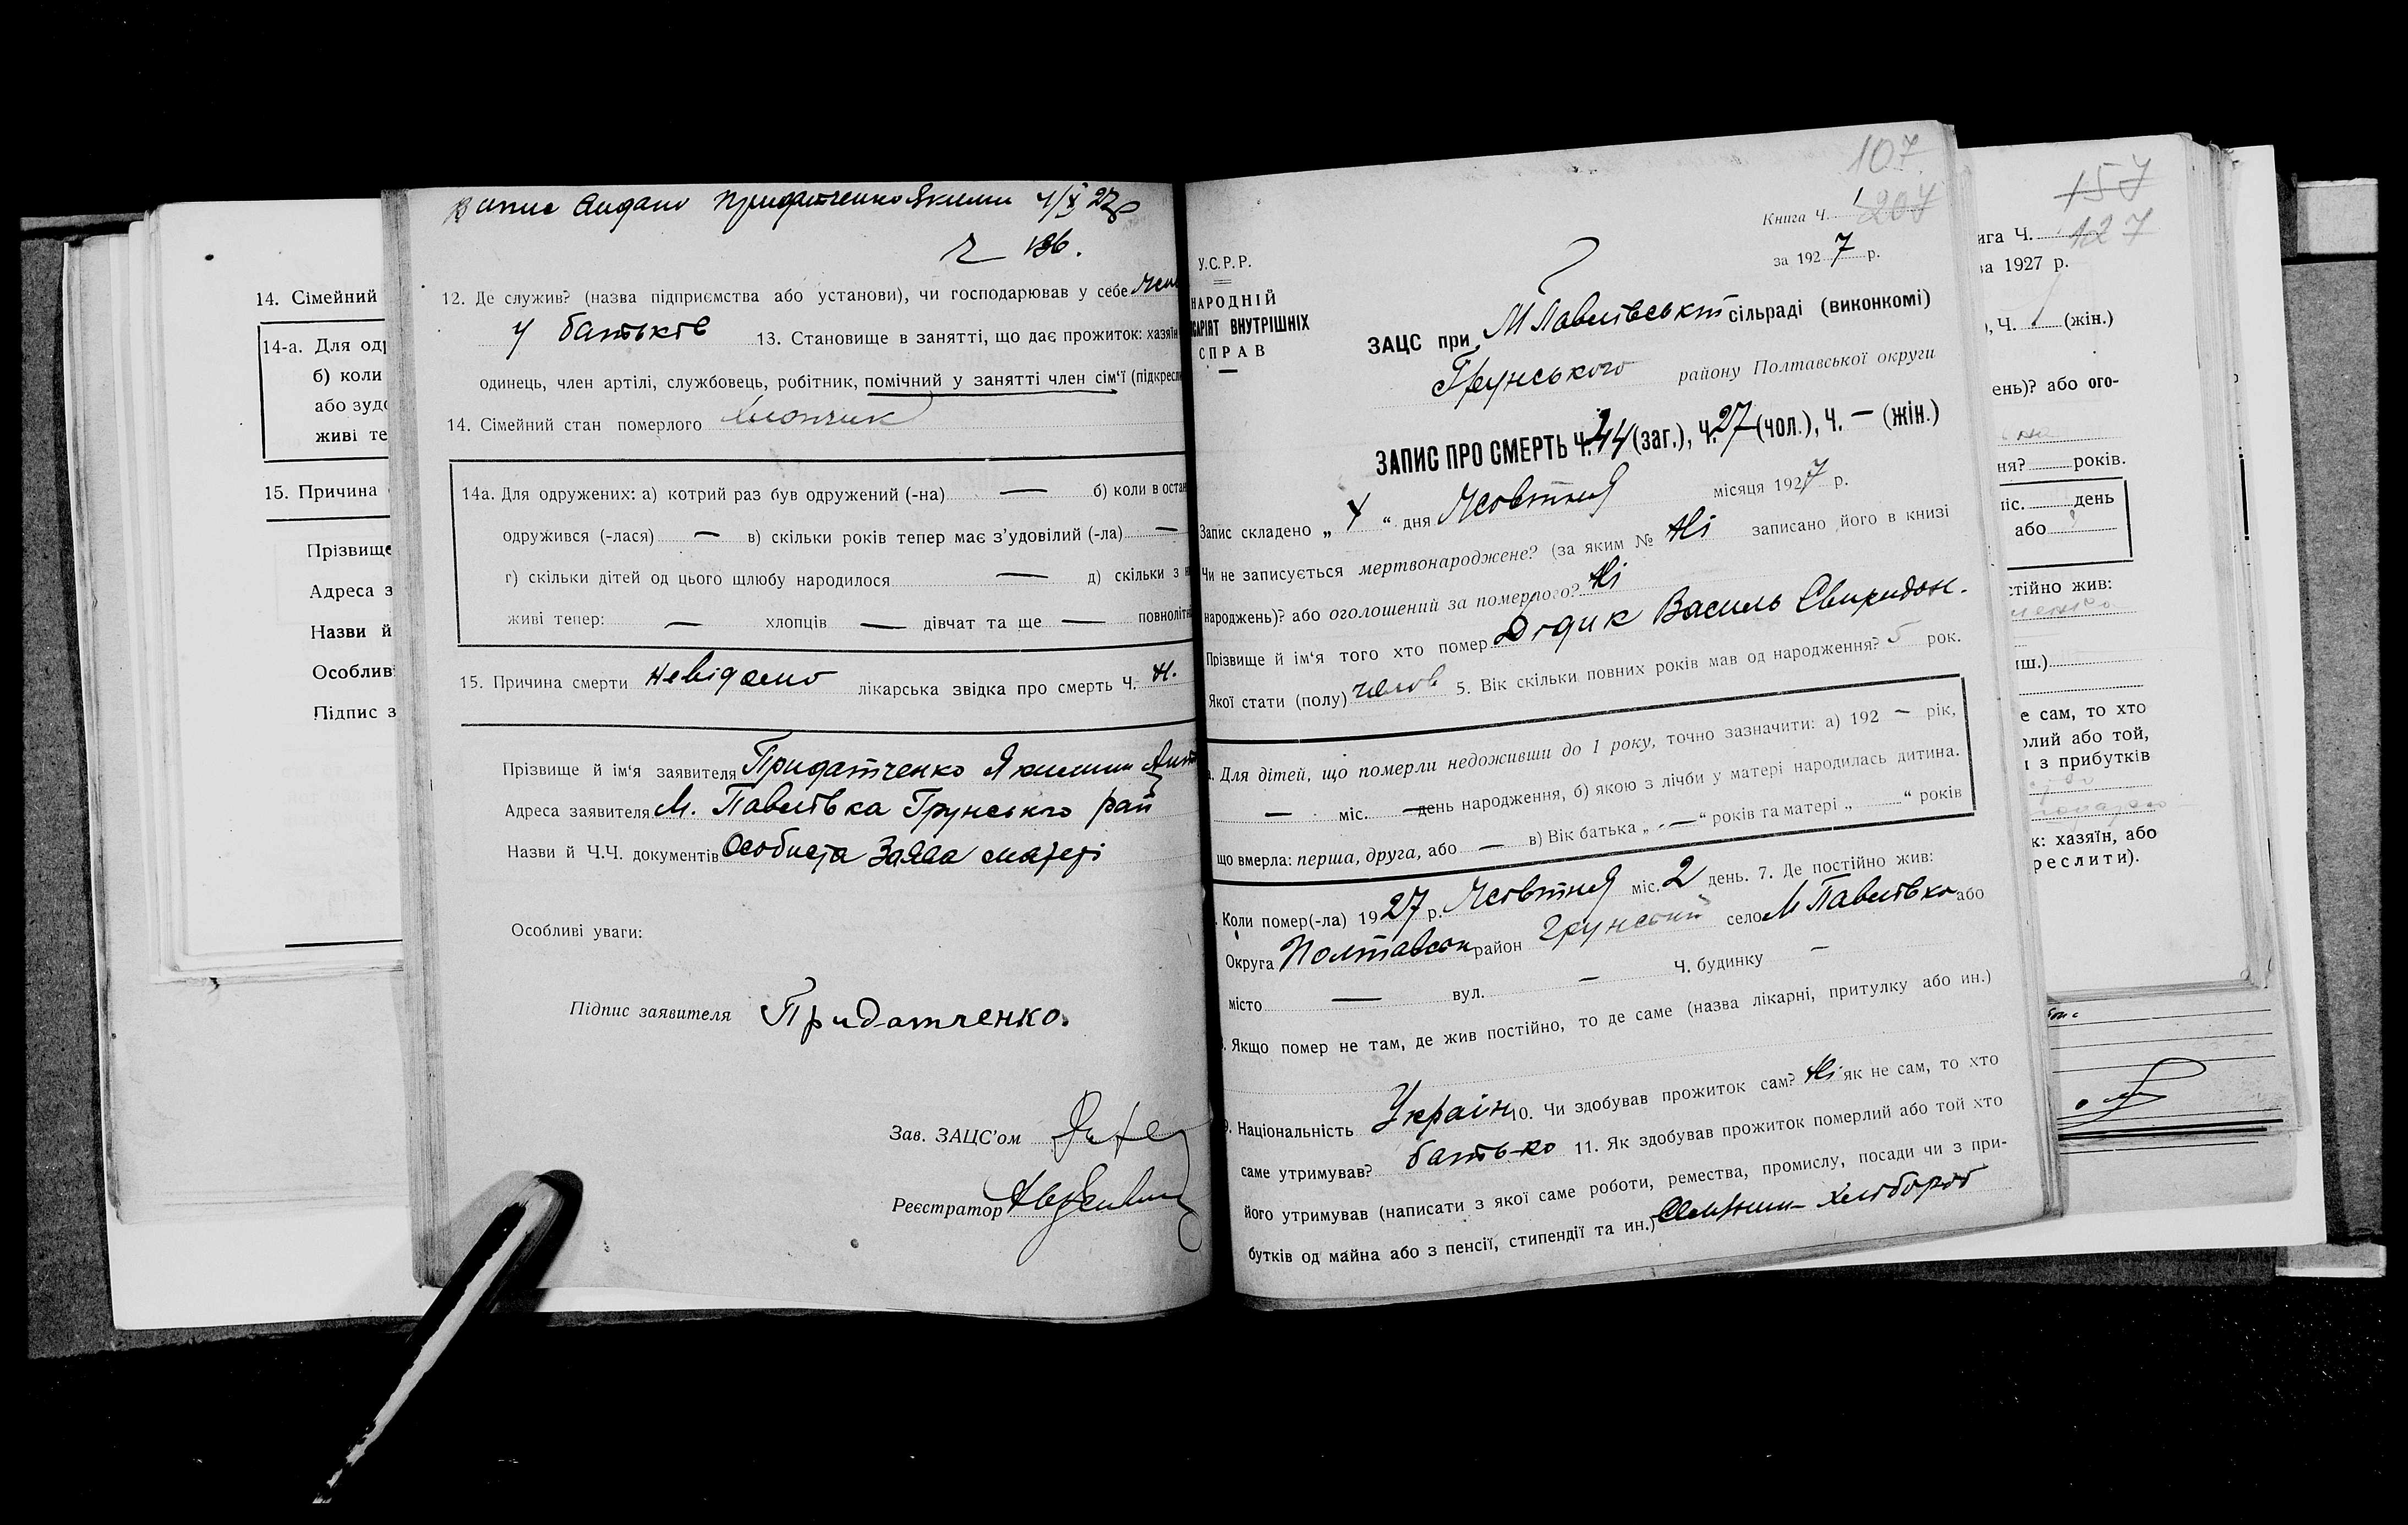 14. Сімейний
14-а. Для од
б) коли
або зудо
живі те
15. Причина
Прізвище
Адреса з
Назви й
Особливі
Підпис з
Випис видано Придатченко Якилини 4/X 27р
Ч 136.
12. Де служив? (назва підприємства або установи), чи господарював у себе
у батьків 13. Становище в занятті, що дає прожиток: хазяїн
одинець, член артілі, службовець, робітник, помічний у занятті член сім'ї (підкресл
14. Сімейний стан померлого хлопчик
14а. Для одружених: а) котрий раз був одружений (-на) — б) коли в остан
одружився (-лася) — в) скільки років тепер має з'удовілий (-ла) —
г) скільки дітей од цього щлюбу народилося — д) скільки з н
живі тепер: — хлопців — дівчат та ще — повноліт
15. Причина смерти невідомо лікарська звідка про смерть Ч. н.
Прізвище й ім'я заявителя Придатченко Якилини
Адреса заявителя М. Павлівка Грунського рай
Назви й Ч.Ч. документів Особиста Заява матері
Особливі уваги:
Підпис заявителя Придатченко.
Зав. ЗАЦС'ом
Реєстратор
107
Книга Ч. 1 207
за 1927 р.
У.С.Р.Р.
НАРОДНІЙ
САРІЯТ ВНУТРІШНІХ
СПРАВ
ЗАЦС при М Павлівськіт сільраді (виконкомі)
Грунського району Полтавської округи
ЗАПИС ПРО СМЕРТЬ Ч. 44 (заг.), Ч. 27 (чол.), Ч. — (жін.)
Запис складено „ 4 “ дня Жовтня місяця 1927 р.
Чи не записується мертвонароджене? (за яким № Ні записано його в книзі
народжень)? або оголошений за померлого? Ні
Прізвище й ім'я того хто помер Дідик Василь Свиридон.
Якої стати (полу) чолов 5. Вік скільки повних років мав од народження? 5 рок.
а. Для дітей, що померли недоживши до 1 року, точно зазначити: а) 192 — рік,
— міс. — день народження, б) якою з лічби у матері народилась дитина.
що вмерла: перша, друга, або — в) Вік батька „ — “ років та матері „ “ років
. Коли помер(-ла) 1927 р. Жовтня міс. 2 день. 7. Де постійно жив:
Округа Полтавськ район Грунський село М Павлівка або
місто — вул. — Ч. будинку —
. Якщо помер не там, де жив постійно, то де саме (назва лікарні, притулку або ин.)
9. Національність Україн 10. Чи здобував прожиток сам? Ні як не сам, то хто
саме утримував? батько 11. Як здобував прожиток померлий або той хто
його утримував (написати з якої саме роботи, ремества, промислу, посади чи з при-
бутків од майна або з пенсії, стипендії та ин.) хлібороб
157
ига Ч. 127
за 1927 р.
), Ч. (жін.)
ень)? або ого-
ня? років.
міс. день
або
стійно жив:
иш.)
е сам, то хто
рлий або той,
и з прибутків
к: хазяїн, або
реслити).